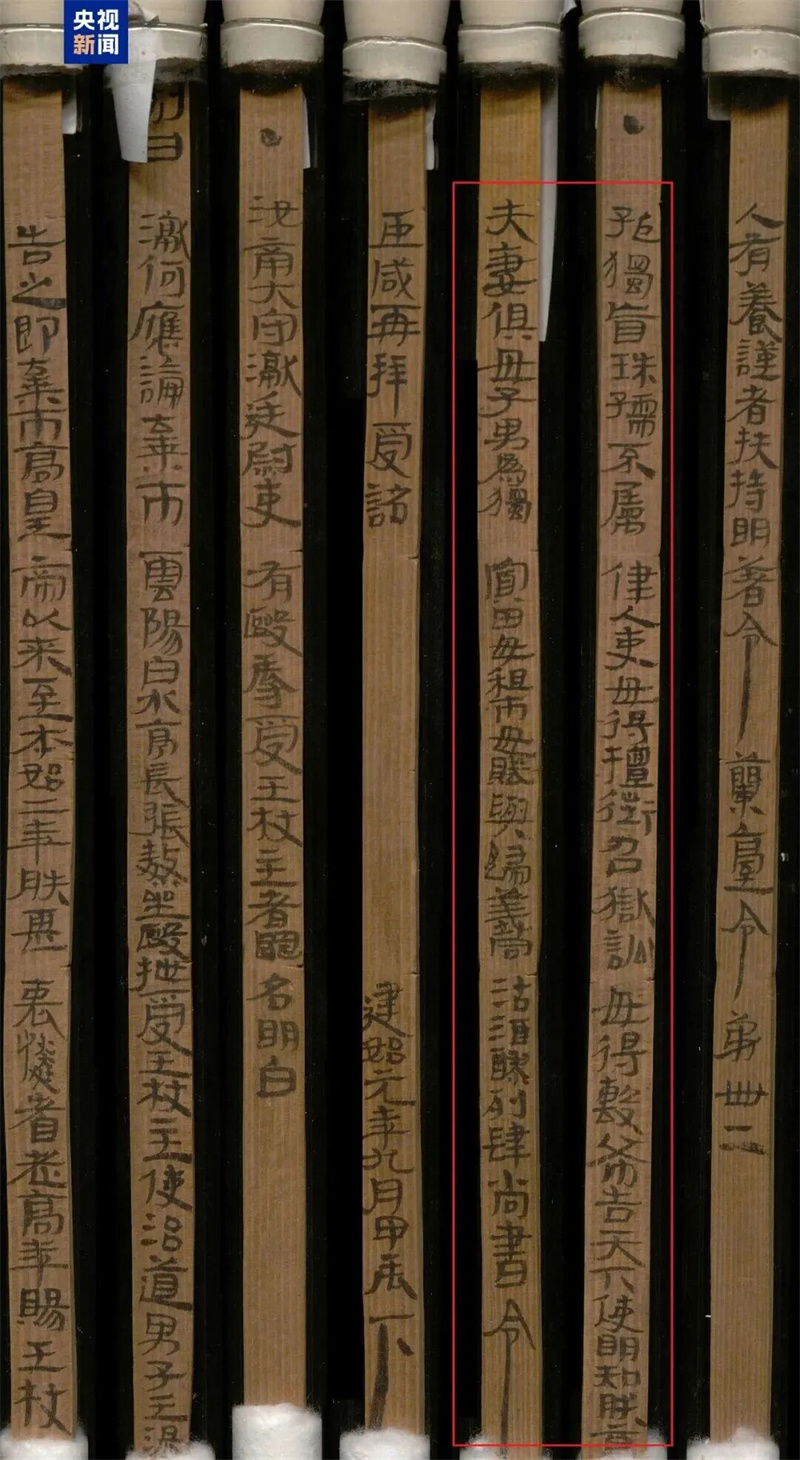 央视
新闻
人有養謹者扶持明著令 蘭臺令第卌二
・孤獨盲珠孺不屬律人吏毋得擅徵召獄訟毋得毄布告天下使明知朕意
夫妻俱毋子男為獨寡田毋租市毋賦與歸義同沽酒醪列肆尚書令
臣咸再拜受詔 建始元年九月甲辰下
・汝南大守讞廷尉吏有毆辱受王杖主者罪名明白
制曰讞何應論棄市雲陽白水亭長張熬坐毆抴受王杖主使治道男子王湯
告之即棄市高皇帝以來至本始二年朕甚哀憐耆老高年賜王杖